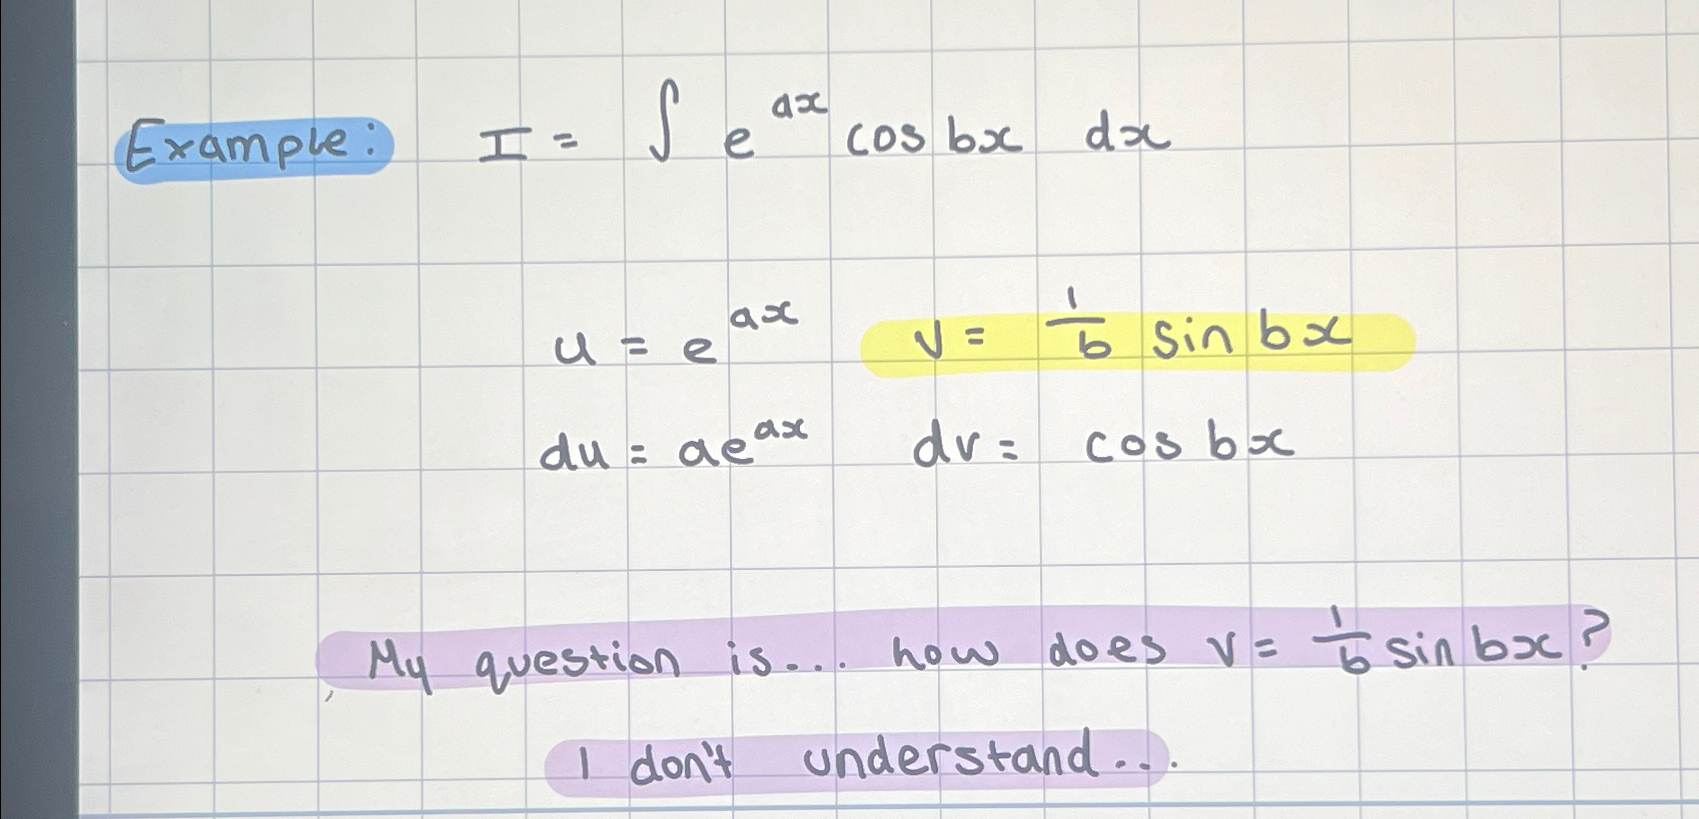 Example: I = ∫ e^{ax} cos bx dx
u = e^{ax} v = 1/b sin bx
du = ae^{ax} dv = cos bx
My question is... how does v = 1/b sin bx?
I don't understand...